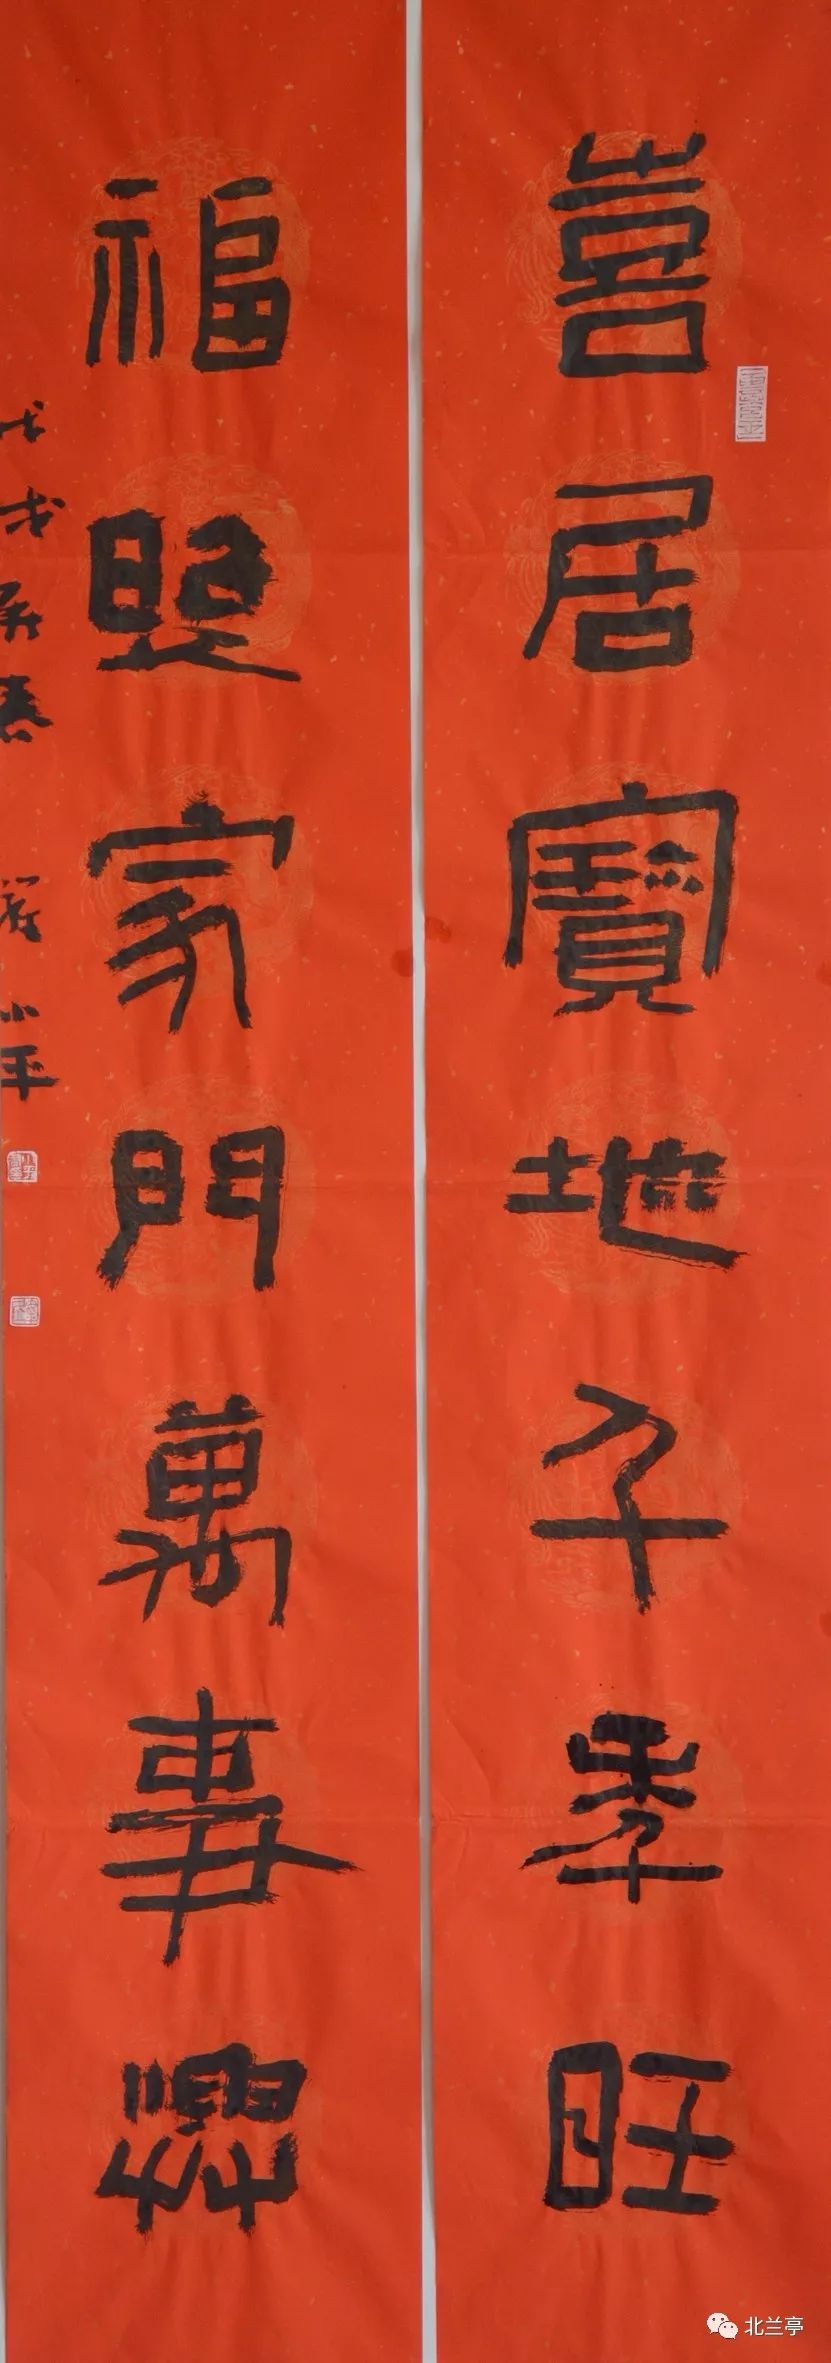 喜居寶地千年旺
福照家門萬事興
戊戌新春 小平
北兰亭